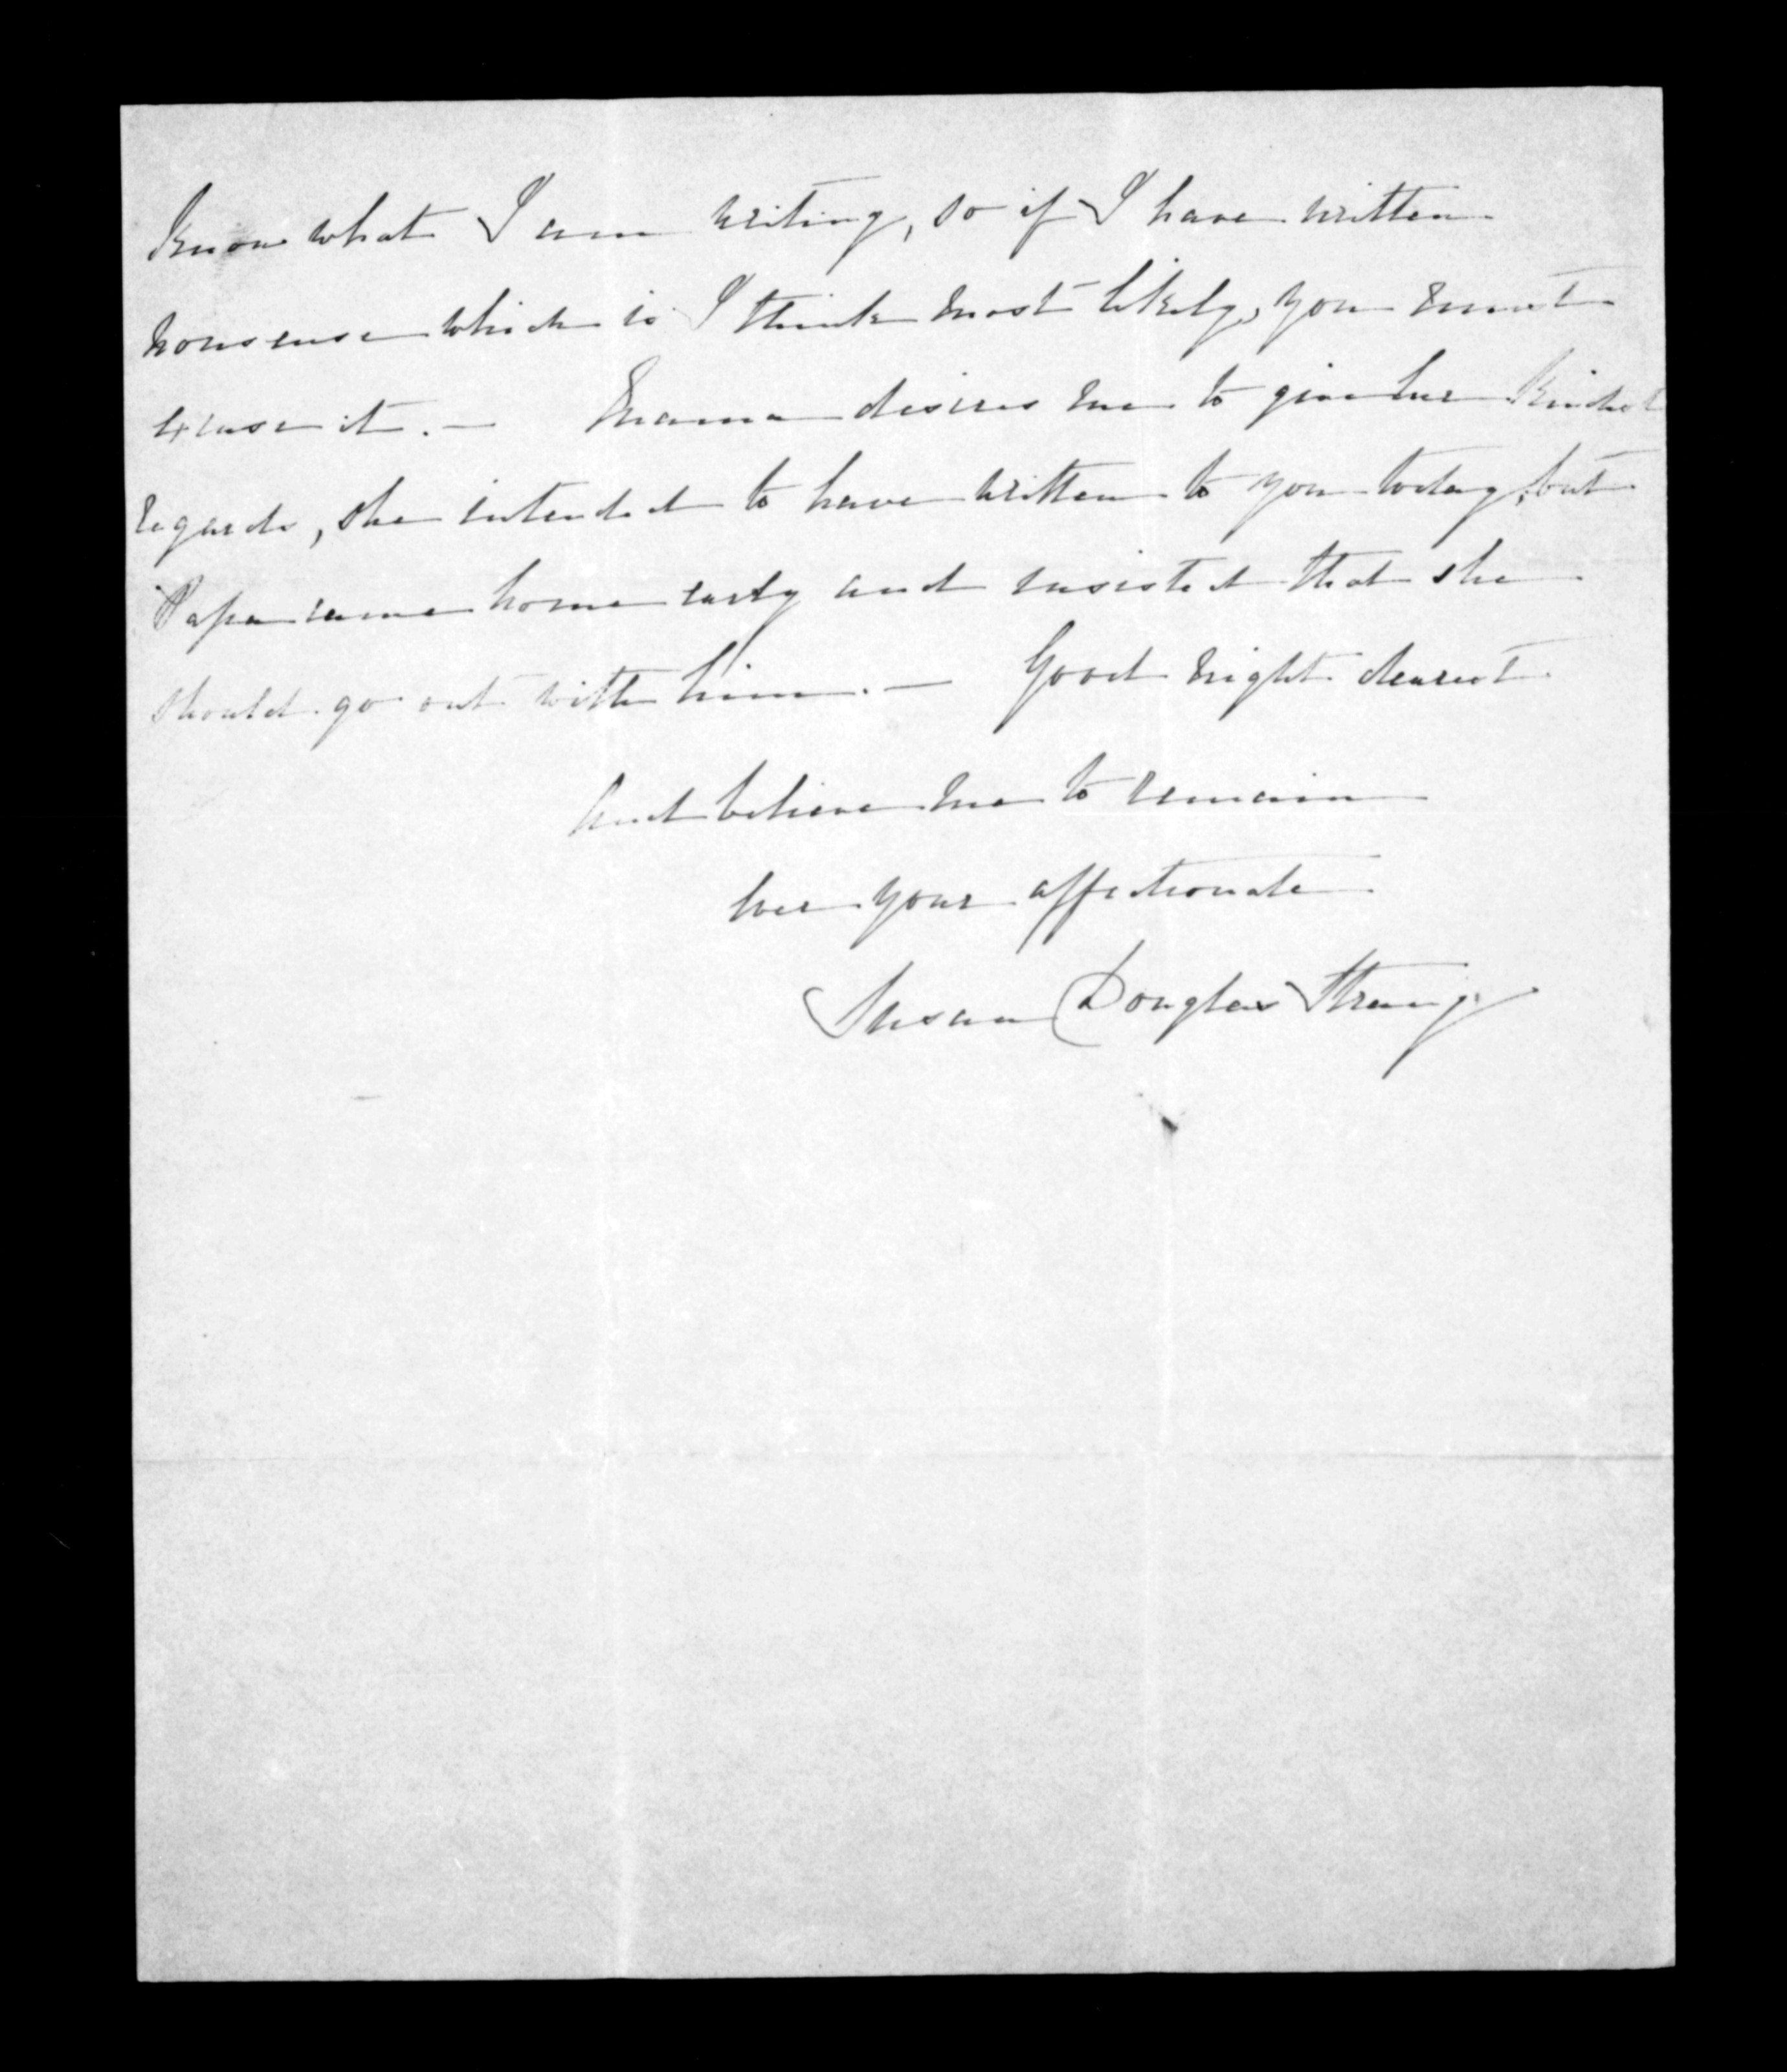 know what I am writing, so if I have written
nonsense which is I think most likely, you must
excuse it. — Mama desires me to give her kindest
regards, she intended to have written to you today, but
Papa came home early and insisted that she
should go out with him. — Good night dearest
and believe me to remain
ever your affectionate
Susan Douglas Strang